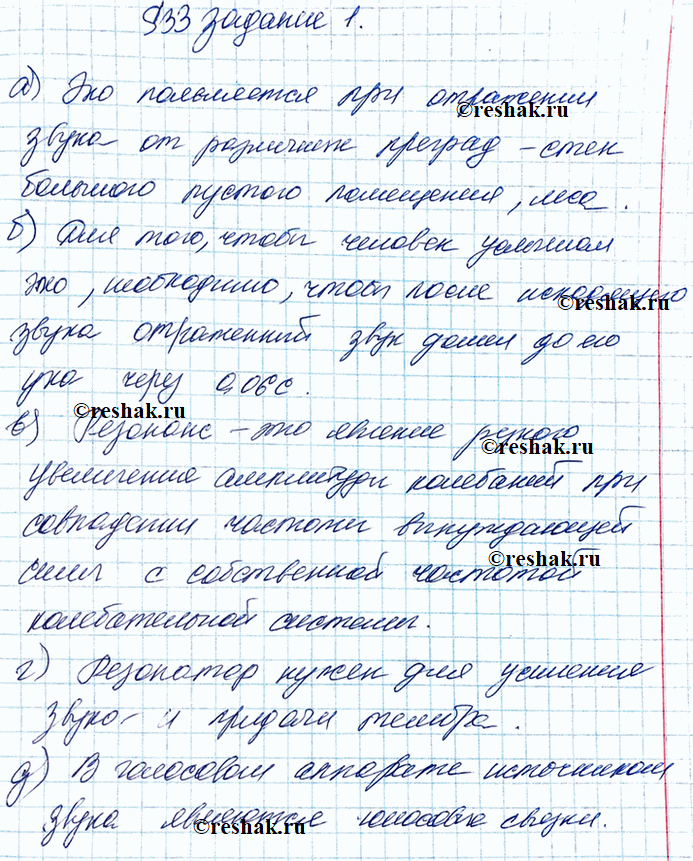 §33 Задание 1.
а) Эхо появляется при отражении
©reshak.ru
звука от различных преград - стен
большого пустого помещения, леса.
б) Для того, чтобы человек услышал
эхо, необходимо, чтобы после исходящего
©reshak.ru
звука отраженный звук дошел до его
уха через 0,06с.
©reshak.ru
в) Резонанс - это явление резкого
©reshak.ru
увеличения амплитуды колебаний при
совпадении частоты вынуждающей
силы с собственной частотой
©reshak.ru
колебательной системы.
г) Резонатор нужен для усиления
звука и придачи тембра.
д) В голосовом аппарате источником
звука являются голосовые связки.
©reshak.ru